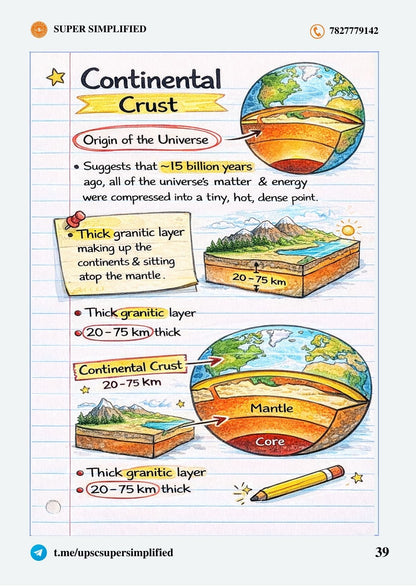 SUPER SIMPLIFIED
7827779142
Continental
Crust
Origin of the Universe
• Suggests that ~15 billion years
ago, all of the universe's matter & energy
were compressed into a tiny, hot, dense point.
• Thick granitic layer
making up the
continents & sitting
atop the mantle.
20-75 km
• Thick granitic layer
• 20-75 km thick
Continental Crust
20-75 km
Mantle
Core
• Thick granitic layer
• 20-75 km thick
t.me/upscsupersimplified
39